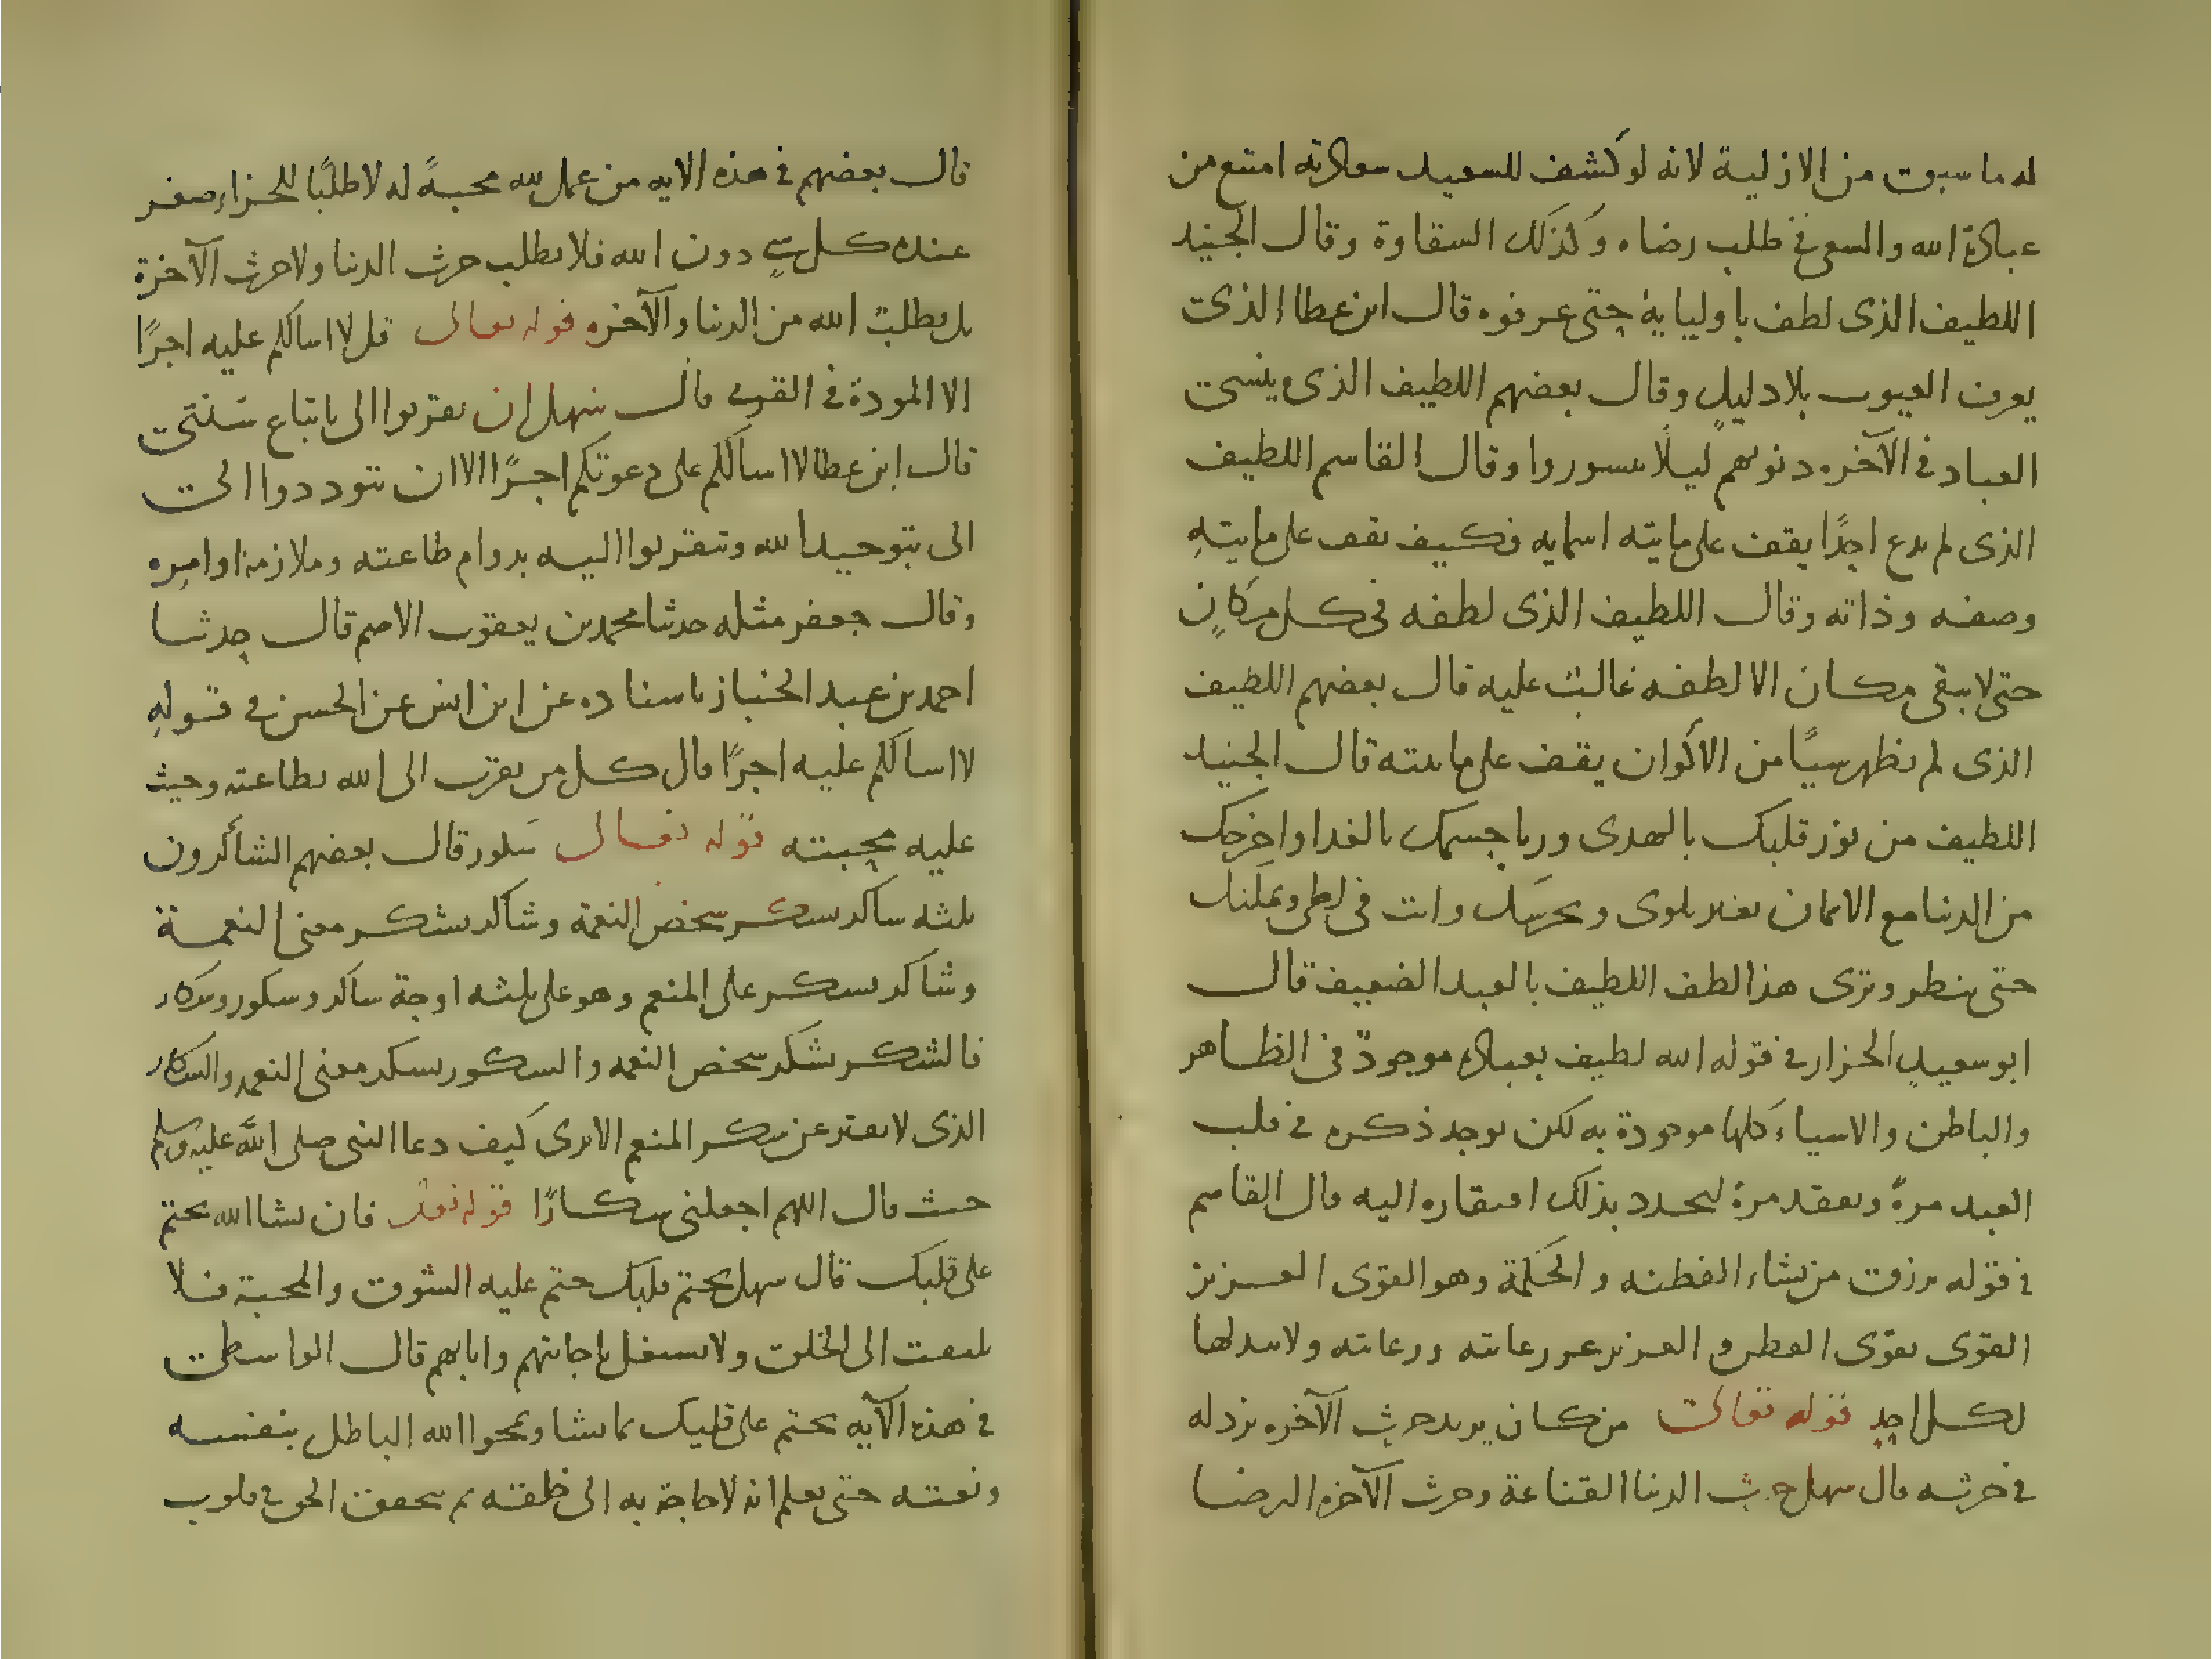 له ما سبقت من الازلية لانه لو كشف للسعيد سعادته امتنع من
عبادة الله والسعى فى طلب رضاه وكذلك السقاوة وقال الجنيد
اللطيف الذى لطف باوليايه حتى عرفوه قال ابن عطا الذى
يعرف العيوب بلا دليل وقال بعضهم اللطيف الذى ينسى
العباد فى الآخره ذنوبهم ليلا وقال القاسم اللطيف
الذى لم يدع احدًا يقف على مايته اسمايه فكيف يقف على مايته
وصفه وذاته وقال اللطيف الذى لطفه فى كل مكان
حتى لا يبقى مكان الا لطفه غالب عليه قال بعضهم اللطيف
الذى لم يظهر سيًا من الاكوان يقف على مايته قال الجنيد
اللطيف من نور قلبك بالهدى وربا جسمك بالغدا واخرجك
من الدنيا مع الايمان بغير بلوى ويحرسك وانت فى لظى
حتى ينطر وترى هذا لطف اللطيف بالعبد الضعيف قال
ابو سعيد الخزار فى قوله الله لطيف بعباده موجود فى الظاهر
والباطن والاسياء كلها موجودة به لكن يوجد ذكره فى قلب
العبد مرة ويفقد مرة ليحدد بذلك افتقاره اليه قال القاسم
فى قوله يرزق من يشاء الفطنه والحكمة وهو القوى العزيز
القوى يقوى الفطن و العزيز عز رعايته ولا يبدلها
لكل احد قوله تعالى من كان يريد حرث الآخره نزد له
فى حرثه قال سهل حرث الدنيا القناعة وحرث الآخره الرضا
قال بعضهم فى هذه الايه من عمل لله محبةً له لا طلبًا للجزاء صغر
عنده كل شى دون الله فلا يطلب حرث الدنيا ولا حرث الآخرة
بل يطلب الله من الدنيا والآخره قوله تعالى قل لا اسالكم عليه اجرًا
الا المودة فى القربى قال سهل ان تقربوا الى باتباع سنتى
قال ابن عطا لا اسالكم على دعوتكم اجرًا الا ان تتوددوا الى
الى بتوحيد الله وتتقربوا اليه بدوام طاعته وملازمة اوامره
وقال جعفر مثله حدثنا محمد بن يعقوب الاصم قال حدثنا
احمد بن عبد الجبار باسناده عن ابن انس عن الحسن فى قوله
لا اسالكم عليه اجرًا قال كل من تقرب الى الله بطاعته وجبت
عليه محبته قوله تعالى شكور قال بعضهم الشاكرون
ثلثه ساكر سكر سخص النعمة وشاكر يشكر معنى النعمة
وشاكر يسكر على المنعم وهو على ثلثه اوجة ساكر وسكور وسكار
فالشكر شكر سخص النعمه والسكور يسكر معنى النعمه والسكار
الذى لا يفتر عن سكر المنعم الا يرى كيف دعا النبى صلى الله عليه وسلم
حيث قال اللهم اجعلنى سكارًا قوله تعالى فان يشا الله يختم
على قلبك قال سهل يختم قلبك ختم عليه الشوق والمحبة فلا
يلتفت الى الخلق ولا يستغل باجابتهم وابابهم قال الواسطى
فى هذه الآيه يختم على قلبك بما يشا ويمحوا الله الباطل بنفسه
ونعته حتى يعلم انه لا حاجة به الى خلقته ثم يحقق الحق فى قلوب